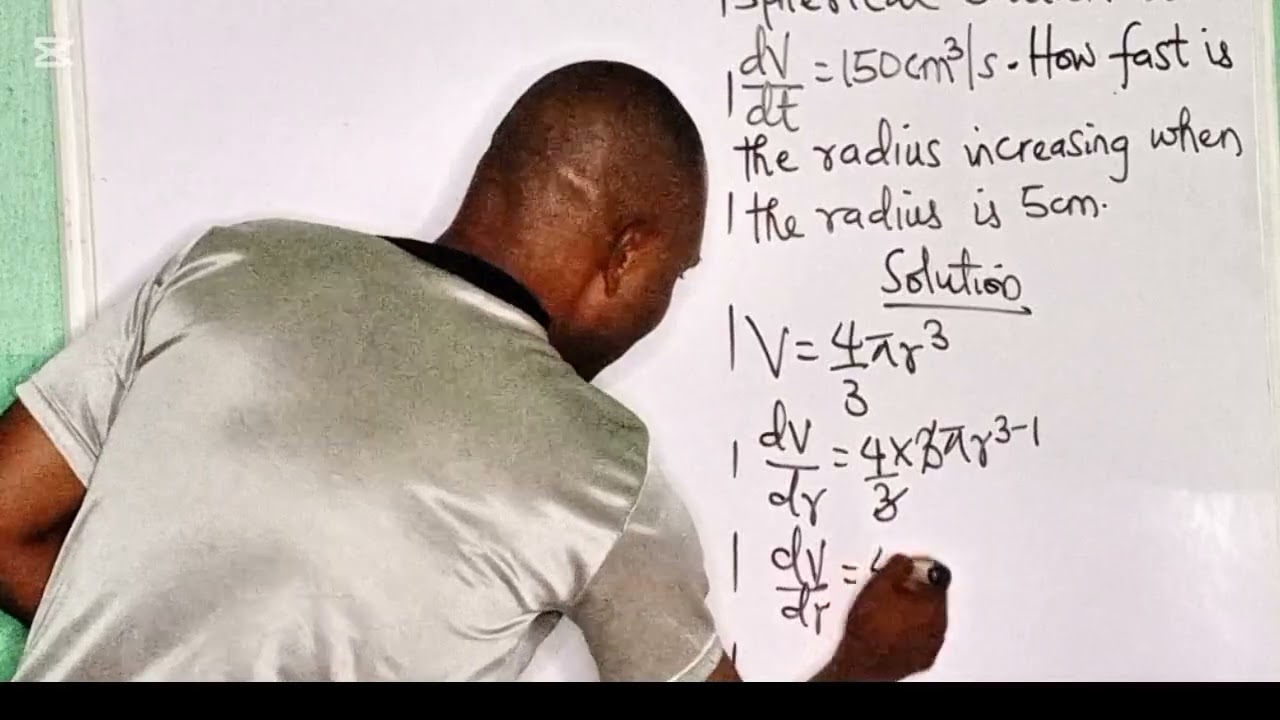 Spherical
dV/dt = 150cm³/s. How fast is
the radius increasing when
the radius is 5cm.
Solution
V = 4/3 πr³
dV/dr = 4×3/3 πr³⁻¹
dV/dr =